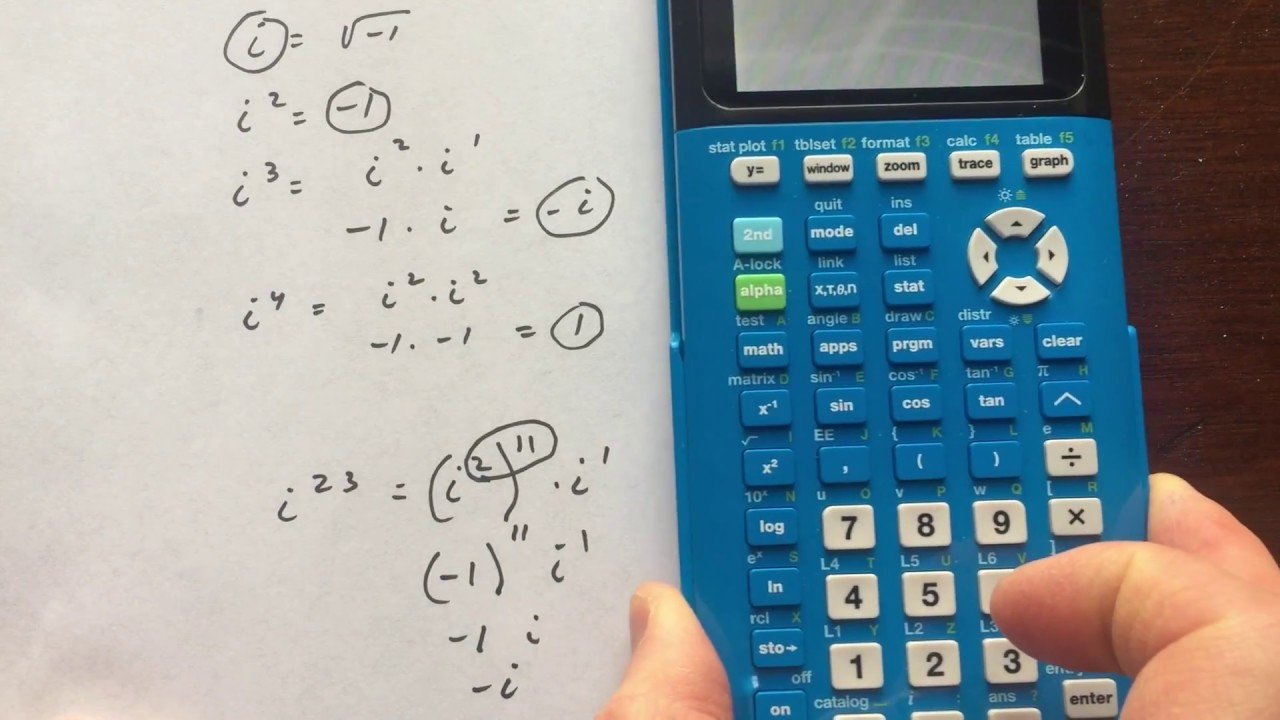 i = √-1
i² = -1
i³ = i² · i¹
-1 · i = -i
i⁴ = i² · i²
-1 · -1 = 1
i²³ = (i²)¹¹ · i¹
(-1)¹¹ i¹
-1 i
-i
stat plot f1 tblset f2 format f3 calc f4 table f5
y= window zoom trace graph
quit ins
2nd mode del
A-lock link list
alpha X,T,θ,n stat
test A angle B draw C distr
math apps prgm vars clear
matrix D sin⁻¹ E cos⁻¹ F tan⁻¹ G π H
x⁻¹ sin cos tan ^
√ I EE J { K } L e M
x² , ( ) ÷
10ˣ N u O v P w Q [ R
log 7 8 9 ×
eˣ S L4 T L5 U L6 V ]
ln 4 5
rcl X L1 Y L2 Z L3
sto→ 1 2 3
off catalog i : ans ?
on enter